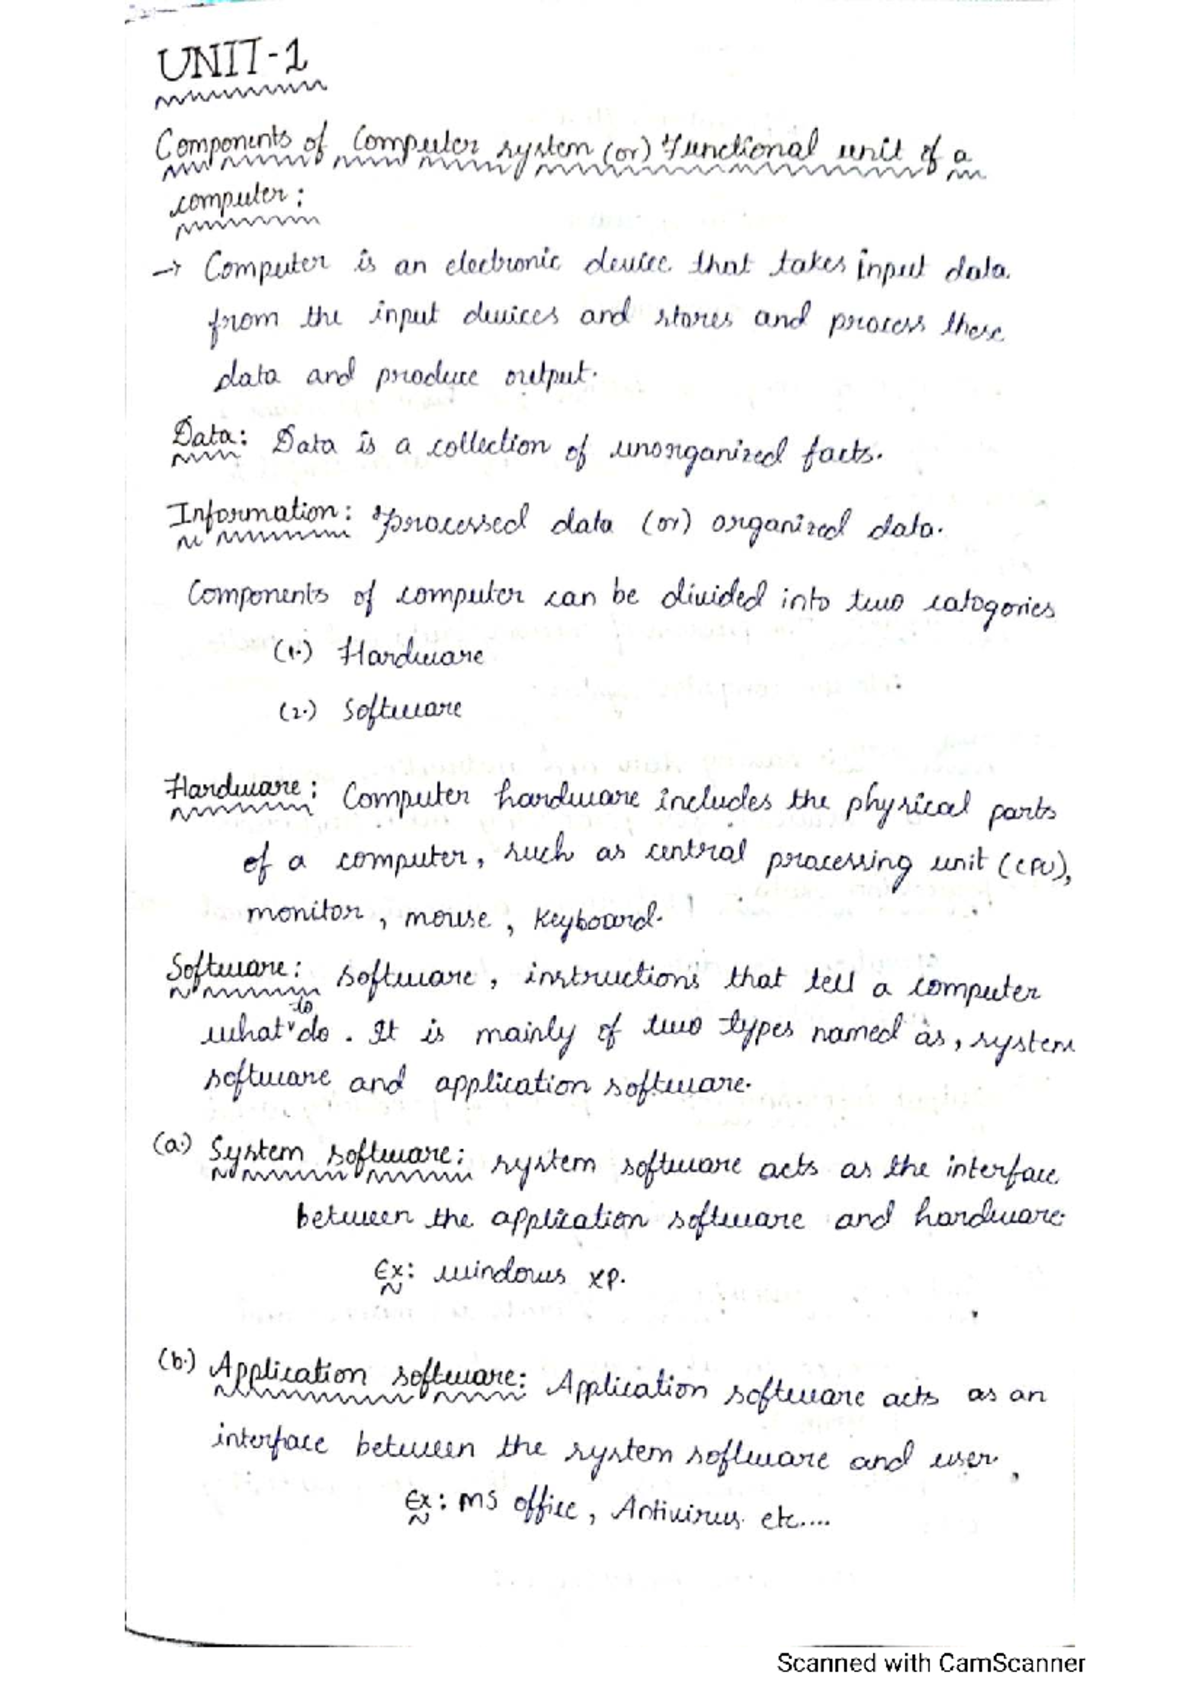 UNIT-1
Components of Computer system (or) Functional unit of a
computer:
→ Computer is an electronic device that takes input data
from the input devices and stores and process these
data and produce output.
Data: Data is a collection of unorganized facts.
Information: Processed data (or) organized data.
Components of computer can be divided into two catogories
(1.) Hardware
(2.) Software
Hardware: Computer hardware includes the physical parts
of a computer, such as central processing unit (CPU),
monitor, mouse, keyboard.
Software: software, instructions that tell a computer
what to do. It is mainly of two types named as, system
software and application software.
(a.) System software: system software acts as the interface
between the application software and hardware.
Ex: windows xp.
(b.) Application software: Application software acts as an
interface between the system software and user.
Ex: MS office, Antivirus etc....
Scanned with CamScanner